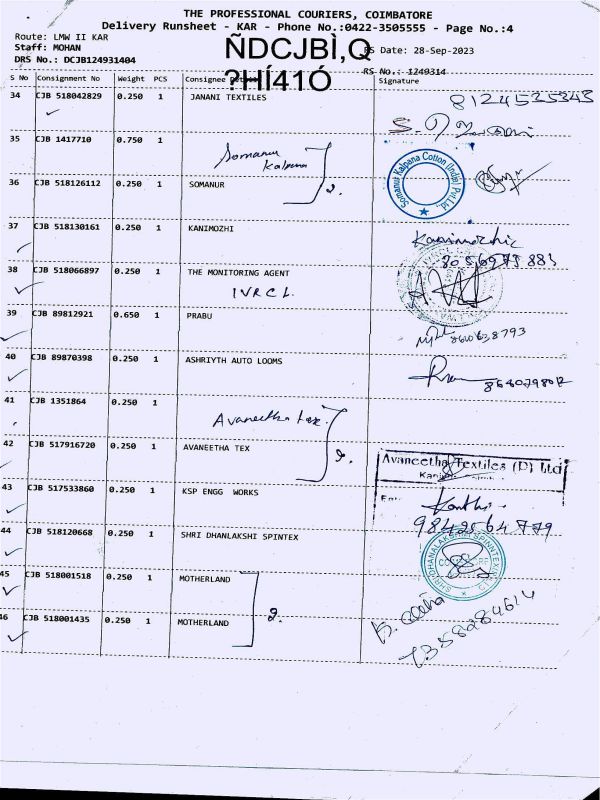 THE PROFESSIONAL COURIERS, COIMBATORE
Delivery Runsheet - KAR - Phone No.:0422-3505555 - Page No.:4
Route: LMW II KAR
Staff: MOHAN
DRS No.: DCJB124931404
ÑDCJBÌ,Q
?HÍ41Ó
RS Date: 28-Sep-2023
RS No.: 1249314
S No Consignment No Weight PCS Consignee Signature
34 CJB 518042829 0.250 1 JANANI TEXTILES
8124525343
35 CJB 1417710 0.750 1
Somanur
Kalpana
2.
Somanur Kalpana Cotton (India) Pvt.Ltd.,
36 CJB 518126112 0.250 1 SOMANUR
37 CJB 518130161 0.250 1 KANIMOZHI
Kanimozhi
38 CJB 518066897 0.250 1 THE MONITORING AGENT
IVRCL
39 CJB 89812921 0.650 1 PRABU
8610638793
40 CJB 89870398 0.250 1 ASHRIYTH AUTO LOOMS
41 CJB 1351864 0.250 1
Avaneetha tex
2.
42 CJB 517916720 0.250 1 AVANEETHA TEX
Avaneetha Textiles (P) Ltd
43 CJB 517533860 0.250 1 KSP ENGG WORKS
9842564779
44 CJB 518120668 0.250 1 SHRI DHANLAKSHI SPINTEX
45 CJB 518001518 0.250 1 MOTHERLAND
2.
46 CJB 518001435 0.250 1 MOTHERLAND
7358284614